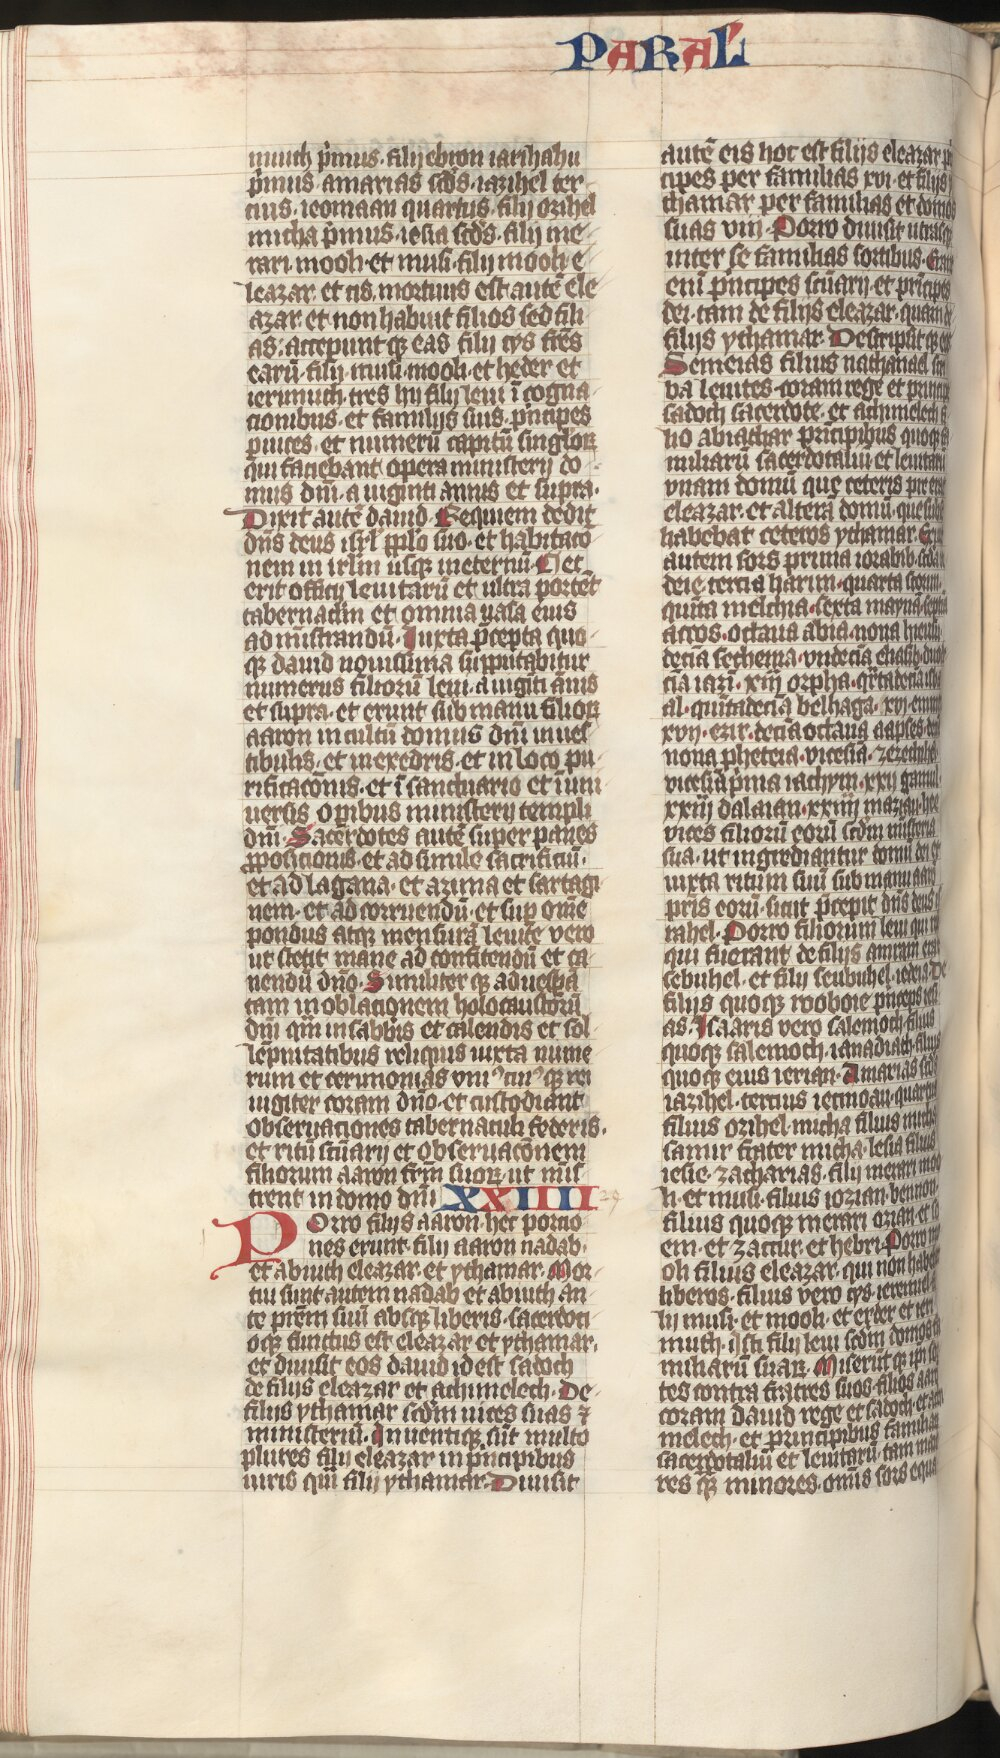 PARAL
muuth p̄mus · filij ebron iarihahu
p̄mus · amarias sc̄ds · iazihel ter
cius · iecmaan quartus · filij ozihel
micha p̄mus · iesia sc̄ds · filij me
rari · mooli · et musi · filij mooli e
leazar · et cis · mortuus est autē ele
azar · et non habuit filios sed fili
as · acceperunt qȝ eas filij cys fr̄es
earū · filij musi · mooli · et heder et
ierimuth · tres hij filij leui ī cogna
tionibus · et familijs suis · p̄ncipes
p uices · et numerū capitū singlorꝝ
qui faciebant opera ministerij do
mus dn̄i · a uiginti annis et supra ·
Dixit autē dauid · Requiem dedit
dn̄s deus isrl̄ pplo suo · et habitaco
nem in irlm̄ usqȝ ineternū · Nec
erit officij leuitarū et ultra portēt
tabernaclm̄ et omnia uasa eius
ad mistrandū · Iuxta p̄cepta quo
qȝ dauid nouissima supputabitur
numerus filiorū leui · a uigīti ānis
et supra · et erunt sub manu filiorꝝ
aaron in cultū domus dn̄i in ues
tibulis · et in exedris · et in loco pu
rificac̄onis · et ī sanctuario et ī uni
uersis opibus ministerij templi
dn̄i · Sacerdotes autē super panes
ppositionis · et ad simile sacrificiū ·
et ad lagana · et azima et sartagi
nem · et ad torruendū · et sup om̄e
pondus atqȝ mensurā leuite vero
ut stent mane ad confitendū et ca
nendū dn̄o · Similiter qȝ ad uesp̄a
tam in oblationem holocaustorū
dn̄i qm̄ in sabb̄is et calendis et sol
lēpnitatibus reliquis iuxta nume
rum et cerimonias vniꝰcuiꝰqȝ rei
iugiter coram dn̄o · et custodiant
obseruationes tabernaculi federis ·
et ritū scūarij et obseruac̄onem
filiorum aaron frm̄ suorꝝ ut mīs
trent in domo dn̄i XXIIII 24
Porro filijs aaron · hec porcio
nes erunt · filij aaron nadab ·
et abiuth eleazar · et ythamar · Mor
tui sunt autem nadab et abiuth an
te p̄rem suū absqȝ liberis · sacerdoti
oqȝ functus est eleazar et ythamar ·
et diuisit eos dauid id est sadoch
de filijs eleazar et achimelech · De
filijs ythamar sc̄dm uices suas ⁊
ministeriū · Inuentiqȝ sūt multo
plures filij eleazar in p̄ncipibus
uiris quā filij ythamar · Diuisit
autē eis hoc est filijs eleazar
cipes per familias xvi · et filijs
thamar per familias et domos
suas viii · Porro diuisit
inter se familias sortibus · Erant
eni p̄ncipes scūarij · et p̄ncipes
dei · tam de filijs eleazar · quam de
filijs ythamar · Descripsit qȝ
Semeias filius nathanael
ba leuites · coram rege et
sadoch sacerdote · et achimelech
lio abiathar p̄ncipibus quoqȝ
miliarū sacerdotaliū et leuitarū
vnam domū que ceteris pre
eleazar · et altera domū · que
habebat ceteros ythamar ·
autem sors prima ioiarib ·
deie · tercia harim · quarta
quīta melchia · sexta
accos · octaua abia · nona
decīa sechenia · vndecīa eliasib ·
cīa iaci · xiij orpha ·
al · quītadecīa belhaga · xvi
xvij · ezir · decīa octaua aapses ·
nona pheteia · vicesīa · zezechihel
vicesīa p̄ma iachym · xxij gamul ·
xxiij dalaiau · xxiiij
vices filiorū eorū sc̄dm
sua · ut ingrediantur domū dei
iuxta ritum suū sub manu
pris eorū · sicut p̄cepit dn̄s deus
rahel · Porro filiorum leui qui
qui fuerant de filijs amram erat
sebuhel · et filij seubuhel · iedeia · De
filijs quoqȝ rooboie p̄nceps
as · Isaaris vero salemoth filius
quoqȝ salemoth · ianadiath · filius
quoqȝ eius ierian · Amarias
iazihel · tercius iecmoau ·
filius ozihel · micha filius micha
samir frater micha · Iesia filius
iesie · zacharias · filij merari
li · et musi · filius iozian · bennon ·
filius quoqȝ merari ozian · et
em · et zaccur · et hebri · Porro
oli filius eleazar · qui non
liberos · filius vero cys ·
lij musi · et mooli · et ezder et
muth · Isti filij leui sc̄dm
miliarū suarꝝ · Miserūt qȝ
tes contra fratres suos · filios
coram dauid rege et sadoch ·
melech · et principibus
sacerdotaliū et leuitarū ·
res qȝ minores · om̄s sors